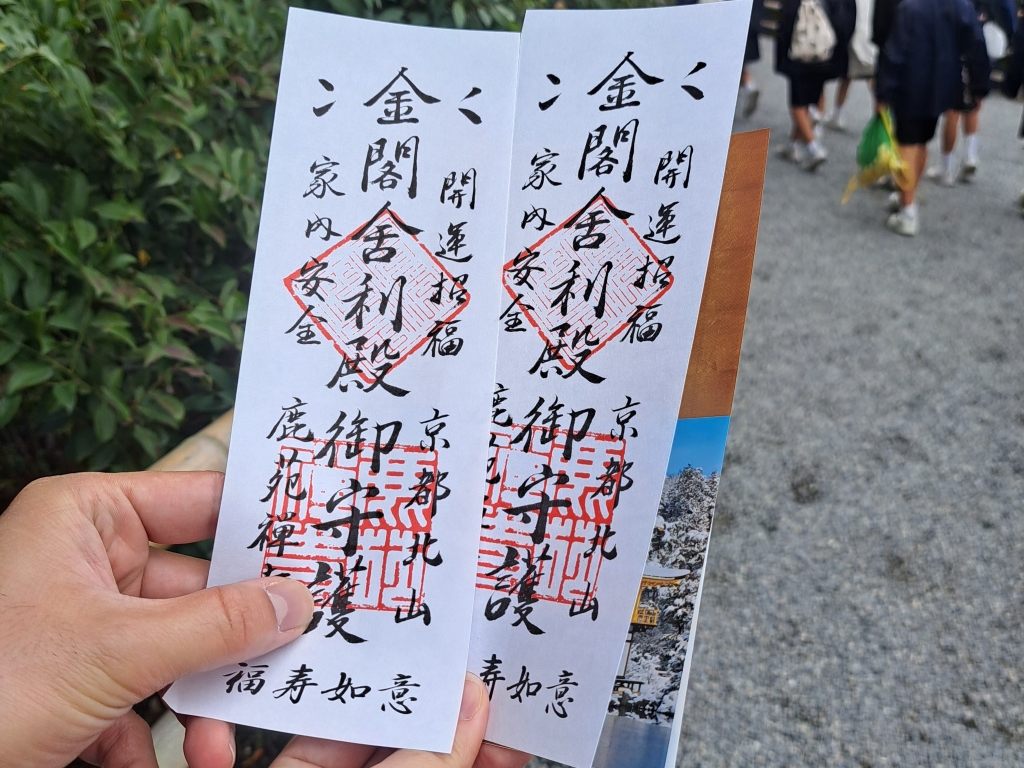 金閣舎利殿御守護
開運招福
家内安全
京都北山
鹿苑禅
福寿如意
金閣舎利殿御守護
開運招福
家内安全
京都北山
鹿苑
寿如意